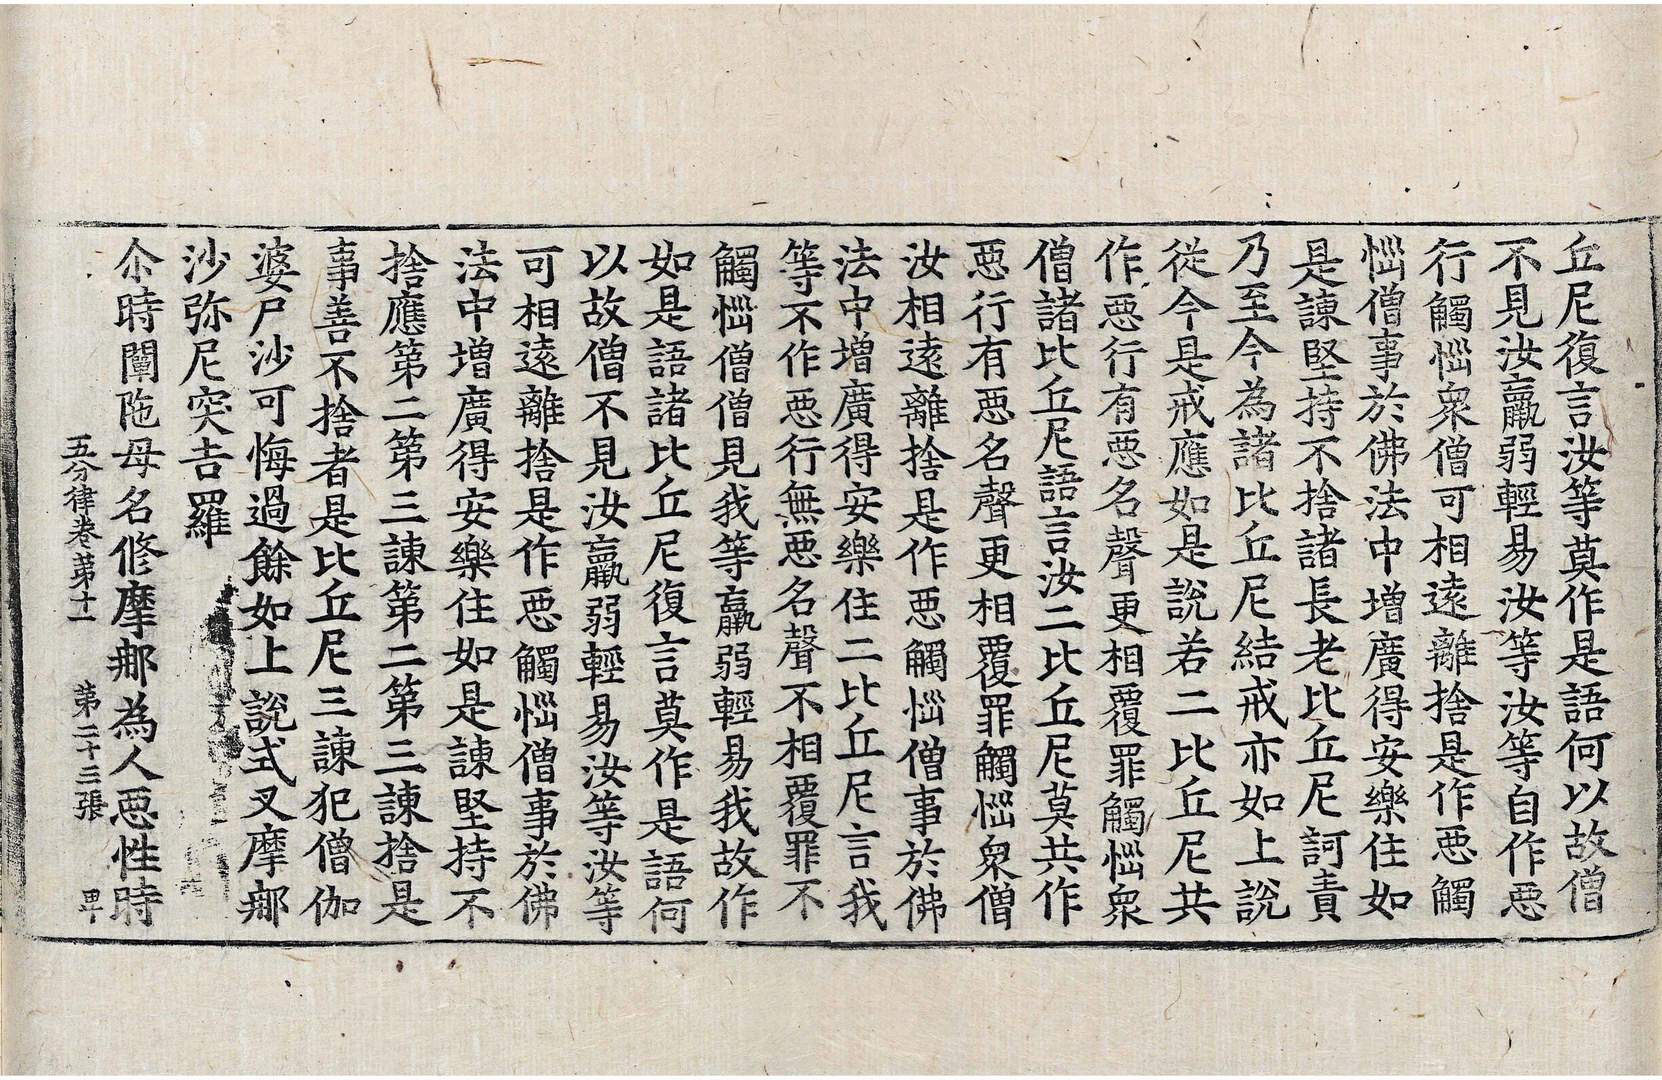 丘尼復言汝等莫作是語何以故僧
不見汝羸弱輕易汝等汝等自作惡
行觸惱衆僧可相遠離捨是作惡觸
惱僧事於佛法中增廣得安樂住如
是諫堅持不捨諸長老比丘尼訶責
乃至今為諸比丘尼結戒亦如上說
從今是戒應如是說若二比丘尼共
作惡行有惡名聲更相覆罪觸惱衆
僧諸比丘尼語言汝二比丘尼莫共作
惡行有惡名聲更相覆罪觸惱衆僧
汝相遠離捨是作惡觸惱僧事於佛
法中增廣得安樂住二比丘尼言我
等不作惡行無惡名聲不相覆罪不
觸惱僧僧見我等羸弱輕易我故作
如是語諸比丘尼復言莫作是語何
以故僧不見汝羸弱輕易汝等汝等
可相遠離捨是作惡觸惱僧事於佛
法中增廣得安樂住如是諫堅持不
捨應第二第三諫第二第三諫捨是
事善不捨者是比丘尼三諫犯僧伽
婆尸沙可悔過餘如上說式叉摩那
沙弥尼突吉羅
尒時闡陁母名修摩那為人惡性時
五分律卷第十一 第二十三張